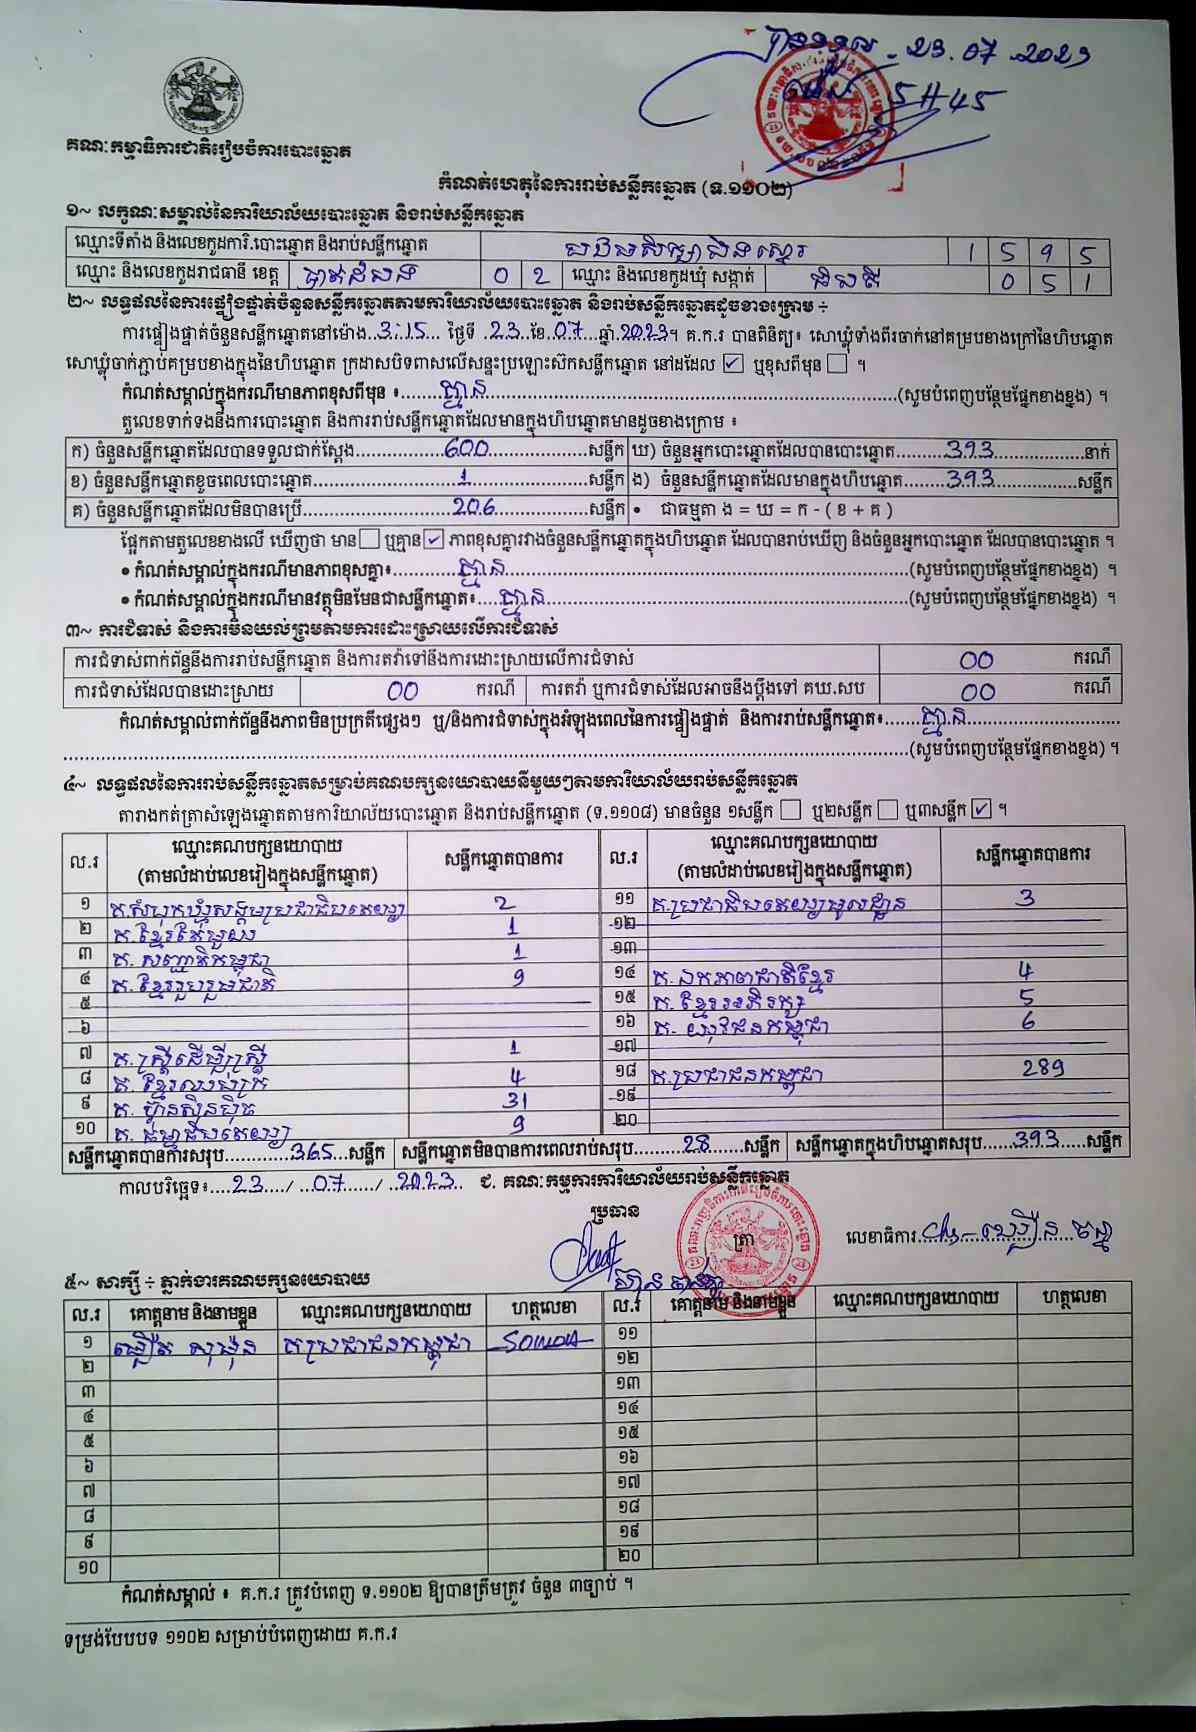 បានទទួល . 23.07.2023
ម៉ោង 5H45
គណៈកម្មាធិការជាតិរៀបចំការបោះឆ្នោត
កំណត់ហេតុនៃការរាប់សន្លឹកឆ្នោត (ទ.១១០២)
១~ លក្ខណៈសម្គាល់នៃការិយាល័យបោះឆ្នោត និងរាប់សន្លឹកឆ្នោត
ឈ្មោះទីតាំង និងលេខកូដការិ.បោះឆ្នោត និងរាប់សន្លឹកឆ្នោត 1 5 9 5
ឈ្មោះ និងលេខកូដរាជធានី ខេត្ត បាត់ដំបង 0 2 ឈ្មោះ និងលេខកូដឃុំ សង្កាត់ 0 5 1
២~ លទ្ធផលនៃការផ្ទៀងផ្ទាត់ចំនួនសន្លឹកឆ្នោតតាមការិយាល័យបោះឆ្នោត និងរាប់សន្លឹកឆ្នោតដូចខាងក្រោម ÷
ការផ្ទៀងផ្ទាត់ចំនួនសន្លឹកឆ្នោតនៅម៉ោង..3:15.. ថ្ងៃទី ..23..ខែ..07...ឆ្នាំ.2023។ គ.ក.រ បានពិនិត្យ៖ សោឃ្លុំទាំងពីរចាក់នៅគម្របខាងក្រៅនៃហិបឆ្នោត
សោឃ្លុំចាក់ភ្ជាប់គម្របខាងក្នុងនៃហិបឆ្នោត ក្រដាសបិទពាសលើសន្ទះប្រឡោះស៊កសន្លឹកឆ្នោត នៅដដែល ☑ ឬខុសពីមុន ☐ ។
កំណត់សម្គាល់ក្នុងករណីមានភាពខុសពីមុន ៖......គ្មាន......(សូមបំពេញបន្ថែមផ្នែកខាងខ្នង) ។
តួលេខទាក់ទងនឹងការបោះឆ្នោត និងការរាប់សន្លឹកឆ្នោតដែលមានក្នុងហិបឆ្នោតមានដូចខាងក្រោម ៖
ក) ចំនួនសន្លឹកឆ្នោតដែលបានទទួលជាក់ស្តែង......600......សន្លឹក ឃ) ចំនួនអ្នកបោះឆ្នោតដែលបានបោះឆ្នោត......393......នាក់
ខ) ចំនួនសន្លឹកឆ្នោតខូចពេលបោះឆ្នោត......1......សន្លឹក ង) ចំនួនសន្លឹកឆ្នោតដែលមានក្នុងហិបឆ្នោត......393......សន្លឹក
គ) ចំនួនសន្លឹកឆ្នោតដែលមិនបានប្រើ......206......សន្លឹក • ជាធម្មតា ង = ឃ = ក - ( ខ + គ )
ផ្អែកតាមតួលេខខាងលើ ឃើញថា មាន ☐ ឬគ្មាន ☑ ភាពខុសគ្នារវាងចំនួនសន្លឹកឆ្នោតក្នុងហិបឆ្នោត ដែលបានរាប់ឃើញ និងចំនួនអ្នកបោះឆ្នោត ដែលបានបោះឆ្នោត ។
• កំណត់សម្គាល់ក្នុងករណីមានភាពខុសគ្នា៖......គ្មាន......(សូមបំពេញបន្ថែមផ្នែកខាងខ្នង) ។
• កំណត់សម្គាល់ក្នុងករណីមានវត្ថុមិនមែនជាសន្លឹកឆ្នោត៖....គ្មាន......(សូមបំពេញបន្ថែមផ្នែកខាងខ្នង) ។
៣~ ការជំទាស់ និងការមិនយល់ព្រមតាមការដោះស្រាយលើការជំទាស់
ការជំទាស់ពាក់ព័ន្ធនឹងការរាប់សន្លឹកឆ្នោត និងការតវ៉ាទៅនឹងការដោះស្រាយលើការជំទាស់ 00 ករណី
ការជំទាស់ដែលបានដោះស្រាយ 00 ករណី ការតវ៉ា ឬការជំទាស់ដែលអាចនឹងប្តឹងទៅ គឃ.សប 00 ករណី
កំណត់សម្គាល់ពាក់ព័ន្ធនឹងភាពមិនប្រក្រតីផ្សេងៗ ឬ/និងការជំទាស់ក្នុងអំឡុងពេលនៃការផ្ទៀងផ្ទាត់ និងការរាប់សន្លឹកឆ្នោត៖......គ្មាន......
......(សូមបំពេញបន្ថែមផ្នែកខាងខ្នង) ។
៤~ លទ្ធផលនៃការរាប់សន្លឹកឆ្នោតសម្រាប់គណបក្សនយោបាយនីមួយៗតាមការិយាល័យរាប់សន្លឹកឆ្នោត
តារាងកត់ត្រាសំឡេងឆ្នោតតាមការិយាល័យបោះឆ្នោត និងរាប់សន្លឹកឆ្នោត (ទ.១១០៨) មានចំនួន ១សន្លឹក ☐ ឬ២សន្លឹក ☐ ឬ៣សន្លឹក ☑ ។
ល.រ ឈ្មោះគណបក្សនយោបាយ (តាមលំដាប់លេខរៀងក្នុងសន្លឹកឆ្នោត) សន្លឹកឆ្នោតបានការ ល.រ ឈ្មោះគណបក្សនយោបាយ (តាមលំដាប់លេខរៀងក្នុងសន្លឹកឆ្នោត) សន្លឹកឆ្នោតបានការ
១ គ.សំបុកឃ្មុំសង្គមប្រជាធិបតេយ្យ 2 ១១ គ.ប្រជាធិបតេយ្យមូលដ្ឋាន 3
២ គ.ខ្មែរតែមួយ 1 ១២
៣ គ. សញ្ជាតិកម្ពុជា 1 ១៣
៤ គ. ខ្មែររួបរួមជាតិ 9 ១៤ គ. ឯកភាពជាតិខ្មែរ 4
៥ ១៥ គ. ខ្មែរអភិរក្ស 5
៦ ១៦ គ. យុវជនកម្ពុជា 6
៧ គ.ស្ត្រីដើម្បីស្ត្រី 1 ១៧
៨ គ. ខ្មែរឈប់ក្រ 4 ១៨ គ.ប្រជាជនកម្ពុជា 289
៩ គ. ហ៊្វុនស៊ិនប៉ិច 31 ១៩
១០ គ. ធម្មាធិបតេយ្យ 9 ២០
សន្លឹកឆ្នោតបានការសរុប......365...សន្លឹក សន្លឹកឆ្នោតមិនបានការពេលរាប់សរុប......28......សន្លឹក សន្លឹកឆ្នោតក្នុងហិបឆ្នោតសរុប......393.....សន្លឹក
កាលបរិច្ឆេទ៖....23..../ ...07....../ ..2023.. ជ. គណៈកម្មការការិយាល័យរាប់សន្លឹកឆ្នោត
ប្រធាន
ត្រា
លេខាធិការ
៥~ សាក្សី ÷ ភ្នាក់ងារគណបក្សនយោបាយ
ល.រ គោត្តនាម និងនាមខ្លួន ឈ្មោះគណបក្សនយោបាយ ហត្ថលេខា ល.រ គោត្តនាម និងនាមខ្លួន ឈ្មោះគណបក្សនយោបាយ ហត្ថលេខា
១ គ.ប្រជាជនកម្ពុជា ១១
២ ១២
៣ ១៣
៤ ១៤
៥ ១៥
៦ ១៦
៧ ១៧
៨ ១៨
៩ ១៩
១០ ២០
កំណត់សម្គាល់ ៖ គ.ក.រ ត្រូវបំពេញ ទ.១១០២ ឱ្យបានត្រឹមត្រូវ ចំនួន ៣ច្បាប់ ។
ទម្រង់បែបបទ ១១០២ សម្រាប់បំពេញដោយ គ.ក.រ